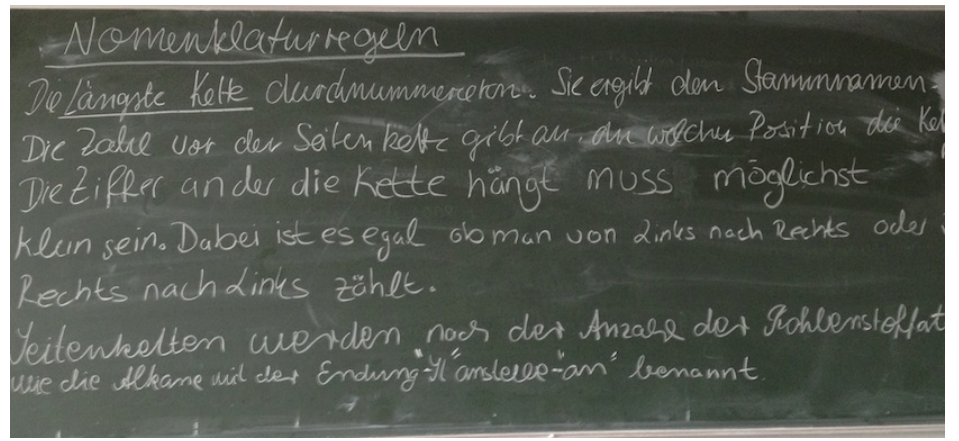 Nomenklaturregeln
Die Längste Kette durchnummerieren. Sie ergibt den Stammnamen
Die Zahl vor der Seitenkette gibt an, an welcher Position die Ket
Die Ziffer an der die Kette hängt muss möglichst
klein sein. Dabei ist es egal ob man von Links nach Rechts oder
Rechts nach Links zählt.
Seitenketten werden nach der Anzahl der Kohlenstoffat
wie die Alkane mit der Endung -"yl" anstelle -"an" benannt.